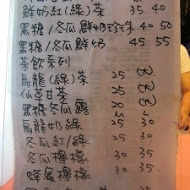 鮮奶紅(綠)茶 35 40
黑糖/冬瓜鮮奶珍珠 40 50
黑糖/冬瓜鮮奶 45 55
茶飲系列
烏龍(綠)茶 25 (大)
仙草甘茶 25 (大)
黑糖冬瓜露 20 (大)
烏龍奶綠 25 30
冬瓜紅/綠 25 30
冬瓜檸檬 25 30
蜂蜜檸檬 30 35